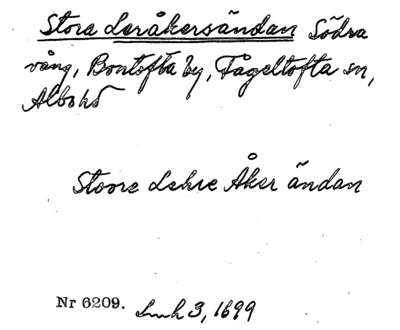 Stora Leråkersändan Södra
vång, Bontofta by, Fågeltofta sn,
Albo hd
Stoore Lehre Åker ändan
Nr 6209. Lmh 3, 1699